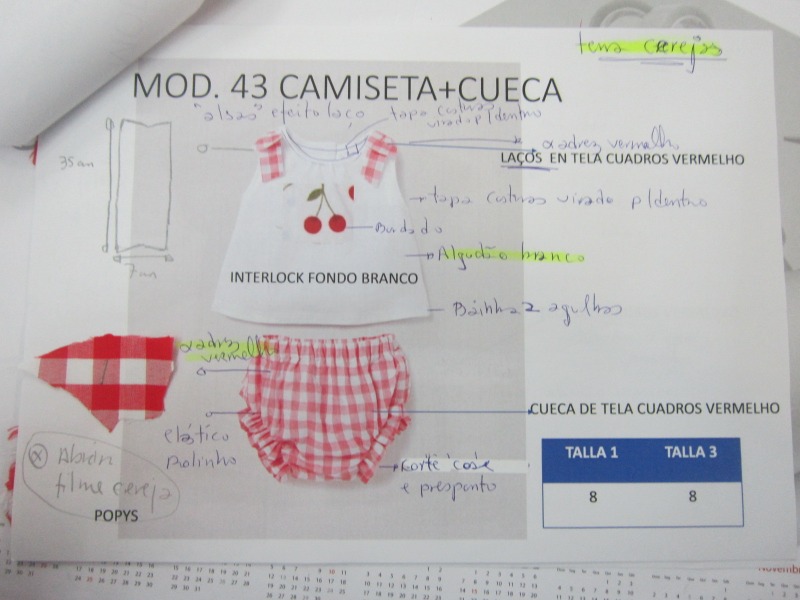 tema cerejas
MOD. 43 CAMISETA+CUECA
"alsas" efeito laço
tapa costuras
virado p/dentro
xadrez vermelho
LAÇOS EN TELA CUADROS VERMELHO
35 cm
7 cm
tapa costuras virado p/dentro
Bordado
Algodão branco
INTERLOCK FONDO BRANCO
Bainha 2 agulhas
xadrez
vermelho
CUECA DE TELA CUADROS VERMELHO
elástico
Rolinho
corte cose
e presponto
TALLA 1 TALLA 3
8 8
filme cereja
POPYS
Novemb